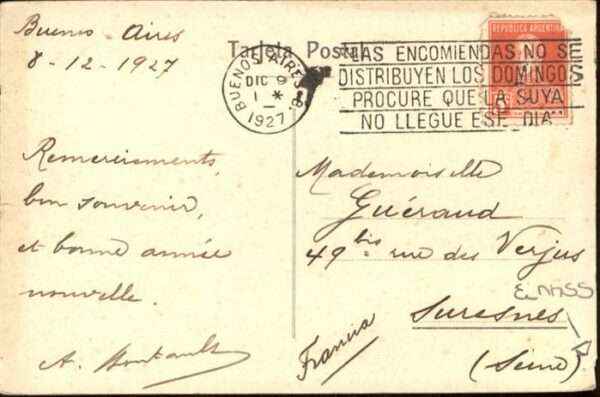 Buenos-Aires
8-12-1927
Remerciements,
bon souvenir,
et bonne année
nouvelle.
A.
Tarjeta Postal
BUENOS AIRES
DIC 9
1 *
1927
"LAS ENCOMIENDAS NO SE
DISTRIBUYEN LOS DOMINGOS
PROCURE QUE LA SUYA
NO LLEGUE ESE DIA"
REPUBLICA ARGENTINA
Mademoiselle
Guéraud
49 bis rue des Verjus
Suresnes
(Seine)
Francia